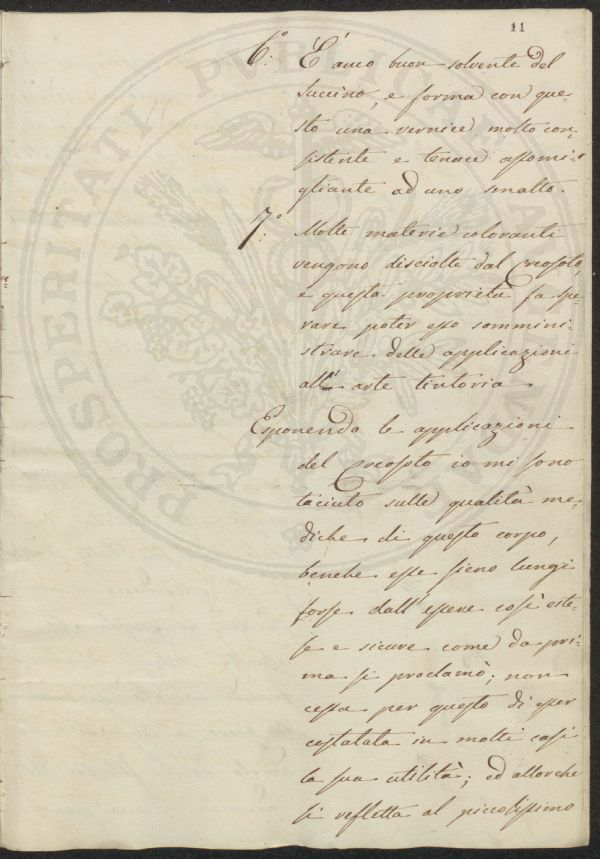 11
6.° È anco buon solvente del
succino, e forma con que-
sto una vernice molto con-
sistente e tenace assomi-
gliante ad uno smalto.
7.° Molte materie coloranti
vengono disciolte dal Creosoto,
e questa proprietà fa spe-
rare poter esso sommini-
strare delle applicazioni
all'arte tintoria
Esponendo le applicazioni
del Creosoto io mi sono
taciuto sulle qualità me-
diche di questo corpo,
benche esse sieno lungi
forse dall'essere così este-
se e sicure come da pri-
ma si proclamò; non
cessa per questo di esser
costatata in molti casi
la sua utilità; ed allorche
si refletta al piccolissimo
PROSPERITATI PUBLICAE AUGENDAE